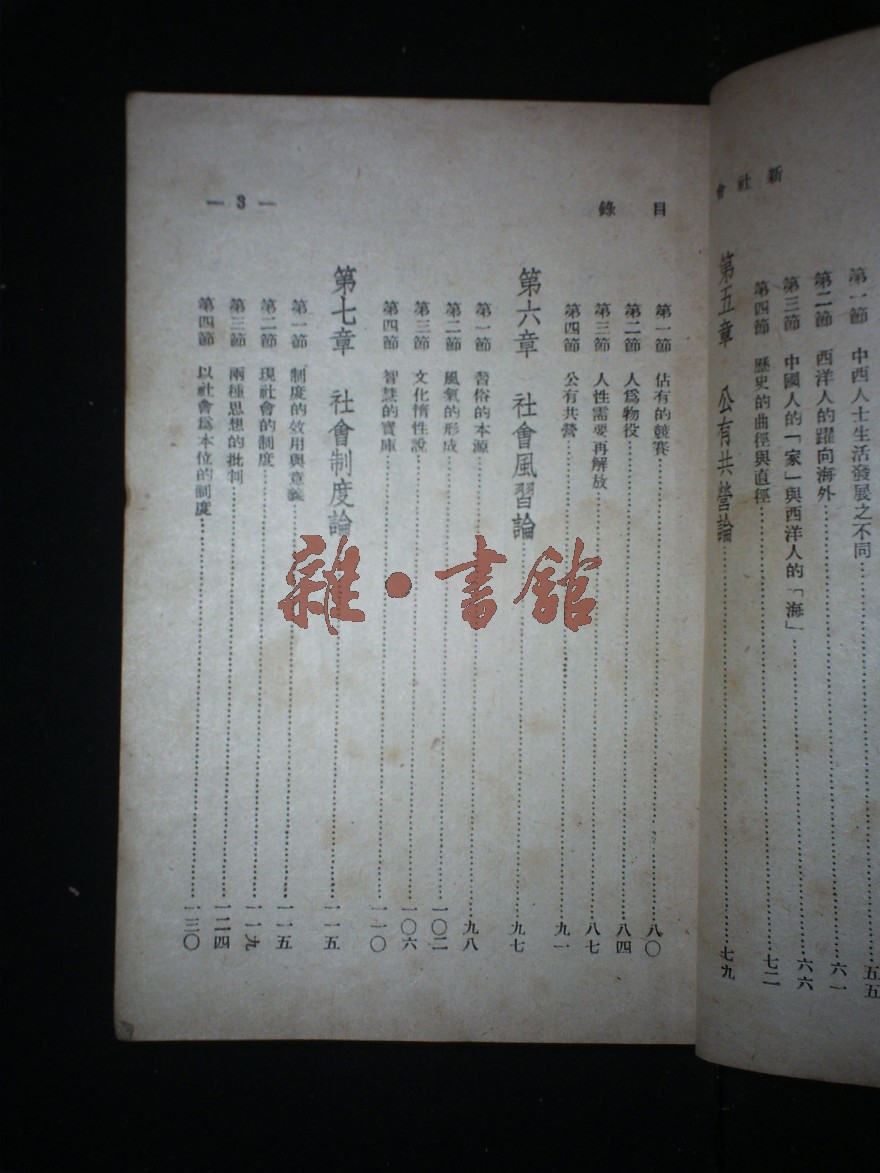 新社會
第一節　中西人士生活發展之不同……五五
第二節　西洋人的躍向海外……六一
第三節　中國人的「家」與西洋人的「海」……六六
第四節　歷史的曲徑與直徑……七二
第五章　公有共營論……七九
目錄
— 3 —
第一節　佔有的競賽……八〇
第二節　人爲物役……八四
第三節　人性需要再解放……八七
第四節　公有共營……九一
第六章　社會風習論……九七
第一節　習俗的本源……九八
第二節　風氣的形成……一〇二
第三節　文化惰性說……一〇六
第四節　智慧的寶庫……一一〇
第七章　社會制度論……一一五
第一節　制度的效用與意義……一一五
第二節　現社會的制度……一一九
第三節　兩種思想的批判……一二四
第四節　以社會爲本位的制度……一三〇
雜·書館